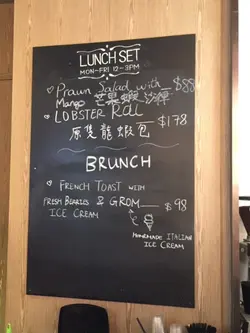 LUNCH SET
MON-FRI 12-3PM
Prawn Salad with $88
Mango 芒果蝦沙律
LOBSTER Roll
原隻龍蝦包 $178
BRUNCH
FRENCH TOAST WITH
FRESH BERRIES & GROM $98
ICE CREAM
HANDMADE ITALIAN
ICE CREAM